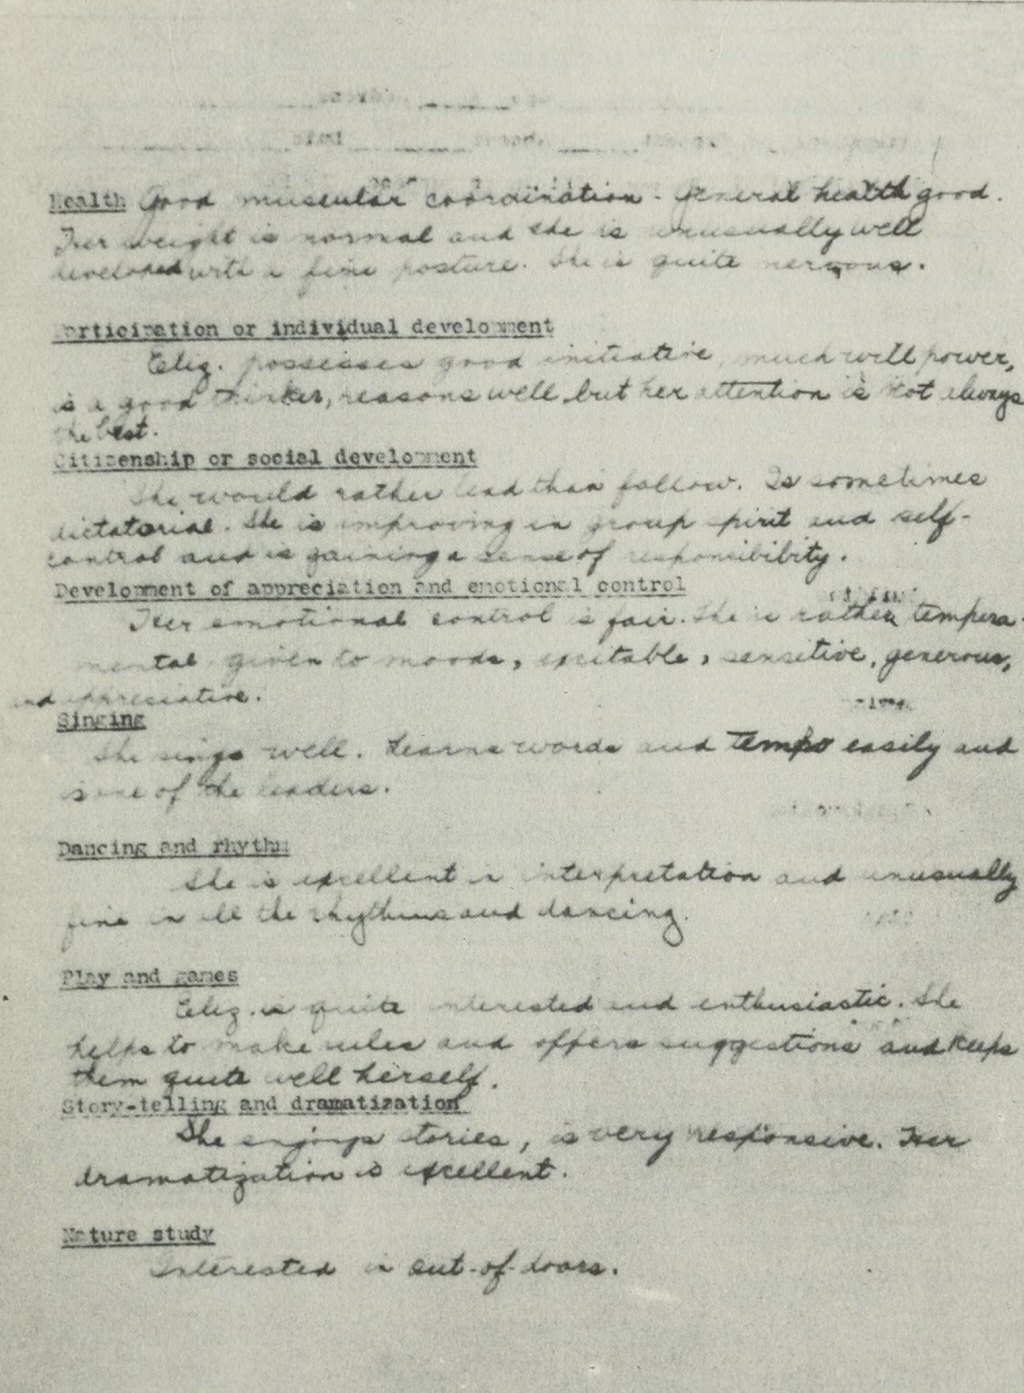 Health Good muscular coordination - General health good.
Her weight is normal and she is unusually well
developed with a fine posture. She is quite nervous.
Participation or individual development
Eliz. possesses good initiative, much will power,
is a good thinker, reasons well, but her attention is not always
the best.
Citizenship or social development
She would rather lead than follow. Is sometimes
dictatorial. She is improving in group spirit and self-
control and is gaining a sense of responsibility.
Development of appreciation and emotional control
Her emotional control is fair. She is rather tempera-
mental, given to moods, excitable, sensitive, generous,
and appreciative.
Singing
She sings well. Learns words and tempo easily and
is one of the leaders.
Dancing and rhythm
She is excellent in interpretation and unusually
fine in all the rhythms and dancing.
Play and games
Eliz. is quite interested and enthusiastic. She
helps to make rules and offers suggestions and keeps
them quite well herself.
Story-telling and dramatization
She enjoys stories, is very responsive. Her
dramatization is excellent.
Nature study
Interested in out-of-doors.